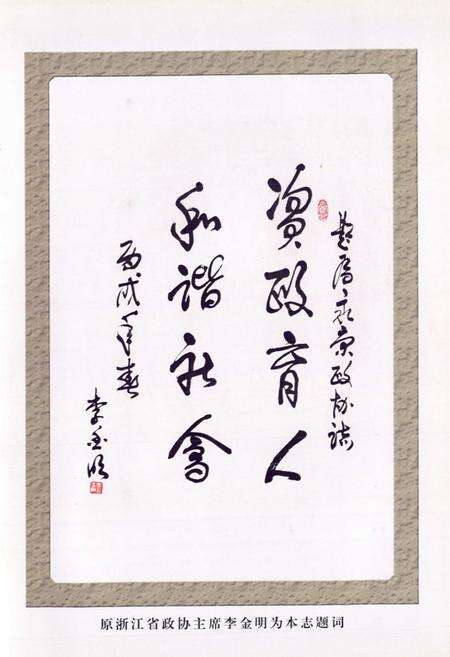 题居永康政协志
资政育人
和谐社會
丙戌年春
李金明
原浙江省政协主席李金明为本志题词